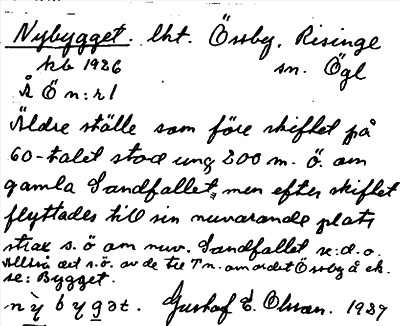 Nybygget. lht. Össby. Risinge
kb 1926 sn. Ögl
Ä Ö n:r 1
Äldre ställe som före skiftet på
60-talet stod ung 200 m. ö. om
gamla Sandfallet, men efter skiftet
flyttades till sin nuvarande plats
strax s. ö om nuv. Sandfallet x:d.o.
Alltså det s.ö. av de tre T n. om ordet Össby å ek.
se: Bygget.
nỳ b y gət. Gustaf E. Olsson. 1927